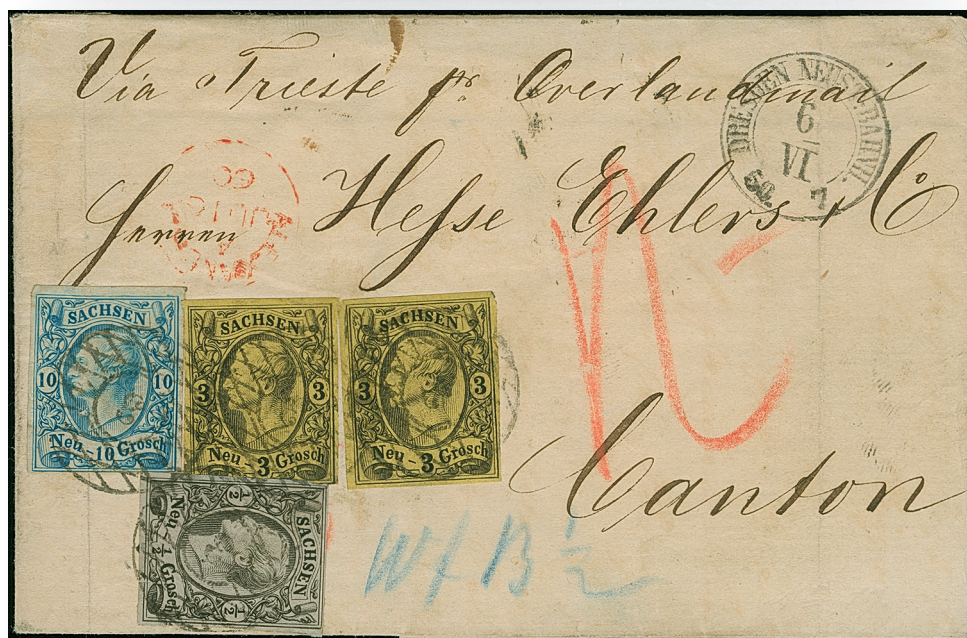 Via Trieste pr. Overlandmail
DRESDEN NEUST. BAHNH.
6
VI
60. 7
Herren Hesse Ehlers & Co
SACHSEN
10 10
Neu-10 Grosch
SACHSEN
3 3
Neu-3 Grosch
SACHSEN
3 3
Neu-3 Grosch
Canton
SACHSEN
½ ½
Neu-½ Grosch